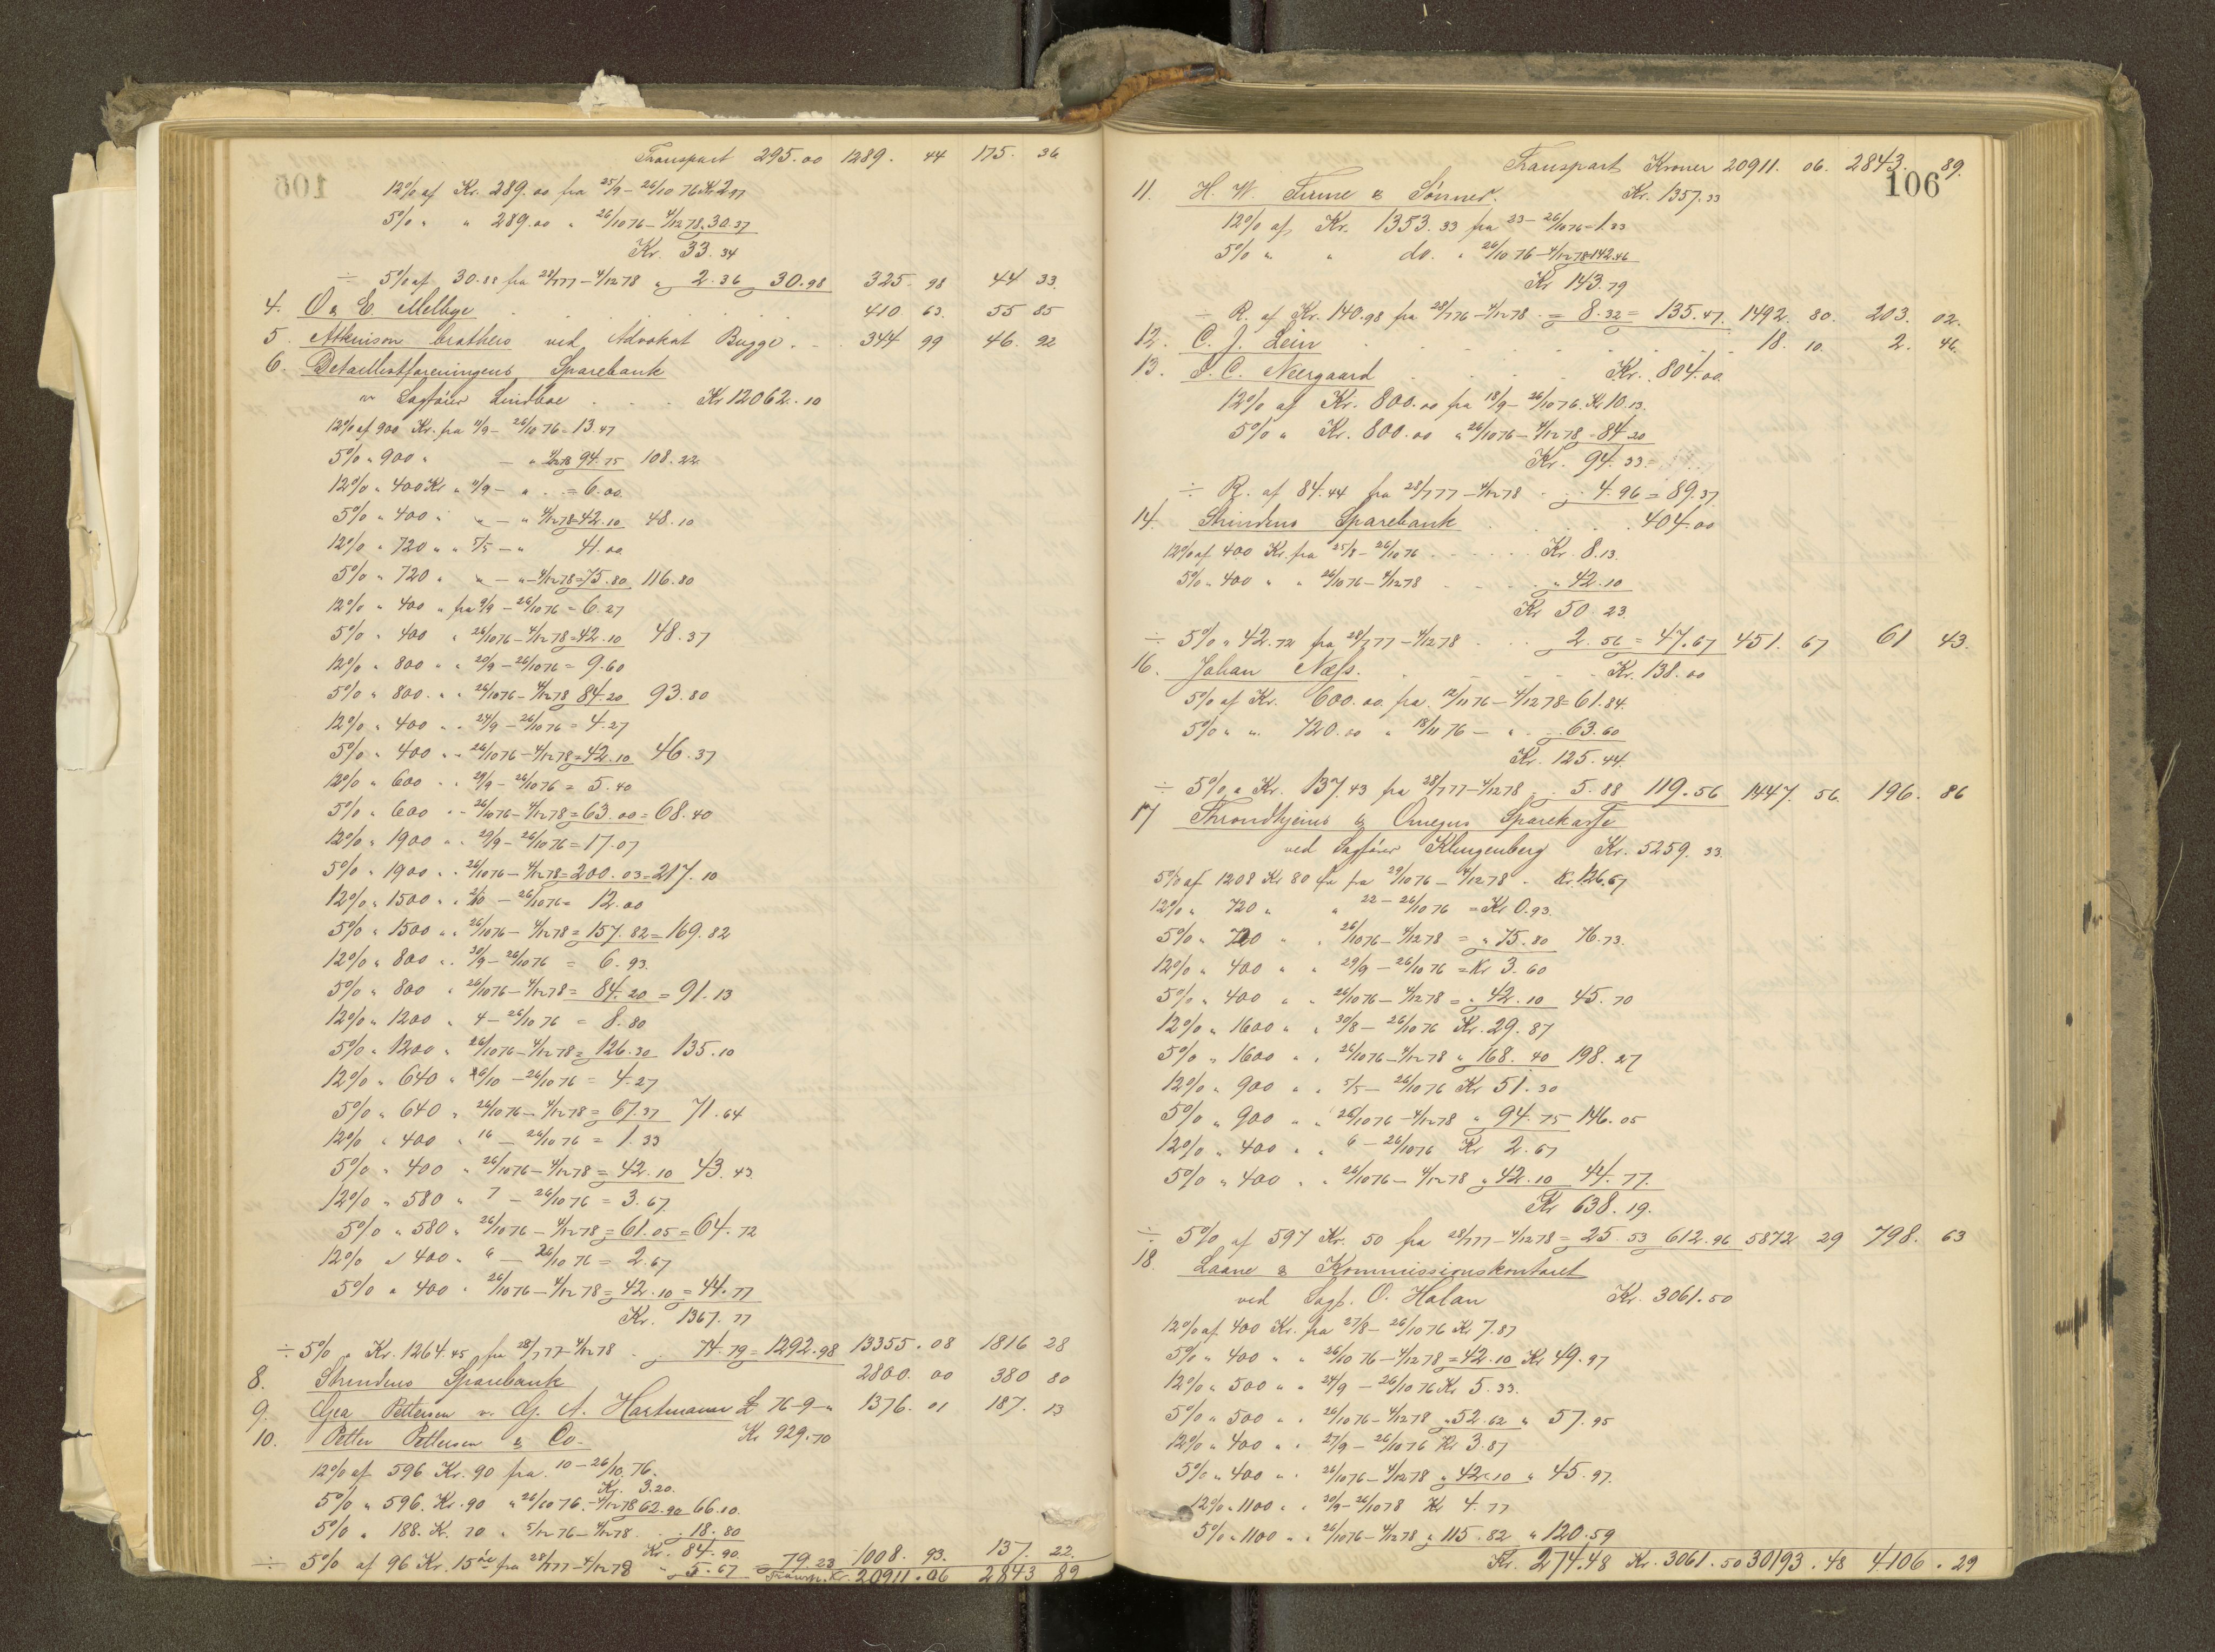 Transport 295.00 1289. 44 175. 36
12% af Kr. 289.00 fra 25/9 - 26/10 76 Kr 2.97
5% " " 289.00 " 26/10 76 - 4/12 78 " 30.37
Kr. 33.34
÷ 5% af 30.88 fra 28/7 77 - 4/12 78 " 2.36 30.98 325. 98 44 33.
4. O & E. Melbye . . . . 410. 63. 55 85
5. Atkinson brothers ved Advokat Bugge . . . 344 99 46. 92
6. Detaillistforeningens Sparebank
v Sagfører Lindboe . . . Kr 12062.10
12% af 900 Kr. fra 11/9 - 26/10 76 = 13.47
5% " 900 " — " 4/12 78 94.75 108.22
12% " 400 Kr " 11/9 - " . = 6.00
5% " 400 " " — " 4/12 78 = 42.10 48.10
12% " 720 " " 5/5 — " 41.00
5% " 720 " " — " - 4/12 78 = 75.80 116.80
12% " 400 " fra 9/9 - 26/10 76 = 6.27
5% " 400 " 26/10 76 - 4/12 78 = 42.10 48.37
12% " 800 " " 20/9 - 26/10 76 = 9.60
5% " 800 " " 26/10 76 - 4/12 78 84.20 93.80
12% " 400 " " 24/9 - 26/10 76 = 4.27
5% " 400 " " 26/10 76 - 4/12 78 = 42.10 46.37
12% " 600 " " 29/9 - 26/10 76 = 5.40
5% " 600 " " 26/10 76 - 4/12 78 = 63.00 = 68.40
12% " 1900 " " 29/9 - 26/10 76 = 17.07
5% " 1900 " " 26/10 76 - 4/12 78 = 200.03 = 217.10
12% " 1500 " " 2/10 - 26/10 76 = 12.00
5% " 1500 " " 26/10 76 - 4/12 78 = 157.82 = 169.82
12% " 800 " " 30/9 - 26/10 76 = 6.93.
5% " 800 " 26/10 76 - 4/12 78 = 84.20 = 91.13
12% " 1200 " 4 - 26/10 76 = 8.80
5% " 1200 " 26/10 76 - 4/12 78 = 126.30 135.10
12% " 640 " 6/10 - 26/10 76 = 4.27
5% " 640 " 26/10 76 - 4/12 78 = 67.37 71.64
12% " 400 " 16 - 26/10 76 = 1.33
5% " 400 " 26/10 76 - 4/12 78 = 42.10 43.43
12% " 580 " 7 - 26/10 76 = 3.67
5% " 580 " 26/10 76 - 4/12 78 = 61.05 = 64.72
12% " 400 " 6 - 26/10 76 = 2.67
5% " 400 " 26/10 76 - 4/12 78 = 42.10 = 44.77
Kr. 1367.77
÷ 5% " Kr. 1264.45 fra 28/7 77 - 4/12 78 . " 74.79 = 1292.98 13355.08 1816 28
8. Strindens Sparebank 2800. 00 380 80
9. Pettersen v. G. A. Hartmann £ 76-9-" 1376. 01 187. 13
10. Petter Pettersen & Co. Kr 929.70
12% af 596 Kr. 90 fra 10 - 26/10 76.
Kr. 3.20.
5% " 596. Kr. 90 " 26/10 76. - 4/12 78 62.90 66.10.
5% " 188. K. 70 " 5/12 76 - 4/12 78 . . 18.80
Kr. 84.90
÷ 5% af 96 Kr. 15 øre fra 28/7 77 - 4/12 78 " 5.67 = 79.23 1008. 93. 137. 22.
Transp. Kr. 20911.06 2843 89
Transport Kroner 20911. 06. 2843. 89.
106
11. H. W. Finne & Sønner. Kr. 1357.33
12% af Kr. 1353.33 fra 23 - 26/10 76 = 1.33
5% " " do. " 26/10 76 - 4/12 78 = 142.46
Kr 143.79
÷ R. af Kr. 140.98 fra 28/7 76 - 4/12 78 . = 8.32 = 135.47. 1492. 80. 203. 02.
12. C. J. Lein . . . . . 18. 10. 2. 46.
13. P. C. Neergaard . . . . Kr. 804.00
12% af Kr. 800.00 fra 18/9 - 26/10 76. Kr 10.13.
5% " Kr. 800.00 " 26/10 76 - 4/12 78 = 84.20
Kr. 94.33
÷ R. af 84.44 fra 28/7 77 - 4/12 78 . " 4.96 = 89.37
14. Strindens Sparebank . . . . . 404.00
12% af 400 Kr. fra 25/8 - 26/10 76 . . . . . Kr. 8.13.
5% " 400 " " 26/10 76 - 4/12 78 . . . " 42.10
Kr 50.23.
÷ 5% " 42.72 fra 28/7 77 - 4/12 78 . . . 2.56 = 47.67 451. 67 61 43.
16. Johan Næss. . . . . Kr. 138.00
5% af Kr. 600.00 fra 12/11 76 - 4/12 78 = 61.84.
5% " " 720.00 " 18/11 76 - " . . 63.60
Kr. 125.44.
÷ 5% " Kr. 137.43 fra 28/7 77 - 4/12 78 . . 5.88 119.56 1447. 56. 196. 86
17 Throndhjems & Omegns Sparekasse
ved Sagfører Klingenberg Kr. 5259.33.
5% af 1208 Kr 80 fra 29/10 76 - 4/12 78 . Kr. 126.67
12% " 720 " " 22 - 26/10 76 = Kr 0.93.
5% " 720 " " 26/10 76 - 4/12 78 = " 75.80 76.73.
12% " 400 " " 29/9 - 26/10 76 = Kr 3.60
5% " 400 " " 26/10 76 - 4/12 78 = " 42.10 45.70
12% " 1600 " " 30/8 - 26/10 76 Kr. 29.87
5% " 1600 " " 26/10 76 - 4/12 78 " 168.40 198.27
12% " 900 " " 5/5 - 26/10 76 Kr 51.30
5% " 900 " " 26/10 76 - 4/12 78 " 94.75 146.05
12% " 400 " " 6 - 26/10 76 Kr 2.67
5% " 400 " " 26/10 76 - 4/12 78 " 42.10 44.77.
Kr 638.19.
÷ 5% af 597 Kr. 50 fra 28/7 77 - 4/12 78 = 25.53 612.96 5872 29 798. 63
18. Laane & Kommissionskontoret
ved Sagf. O. Halan Kr. 3061.50
12% af 400 Kr. fra 27/8 - 26/10 76 Kr 7.87
5% " 400 " " 26/10 76 - 4/12 78 = 42.10 Kr 49.97
12% " 500 " " 24/9 - 26/10 76 Kr 5.33.
5% " 500 " " 26/10 76 - 4/12 78 " 52.62 " 57.95
12% " 400 " " 27/9 - 26/10 76 Kr 3.87
5% " 400 " " 26/10 76 - 4/12 78 " 42.10 " 45.97.
12% " 1100 " " 30/9 - 26/10 78 Kr 4.77
5% " 1100 " " 26/10 76 - 4/12 78 " 115.82 " 120.59
Kr. 274.48 Kr. 3061.50 30193.48 4106.29